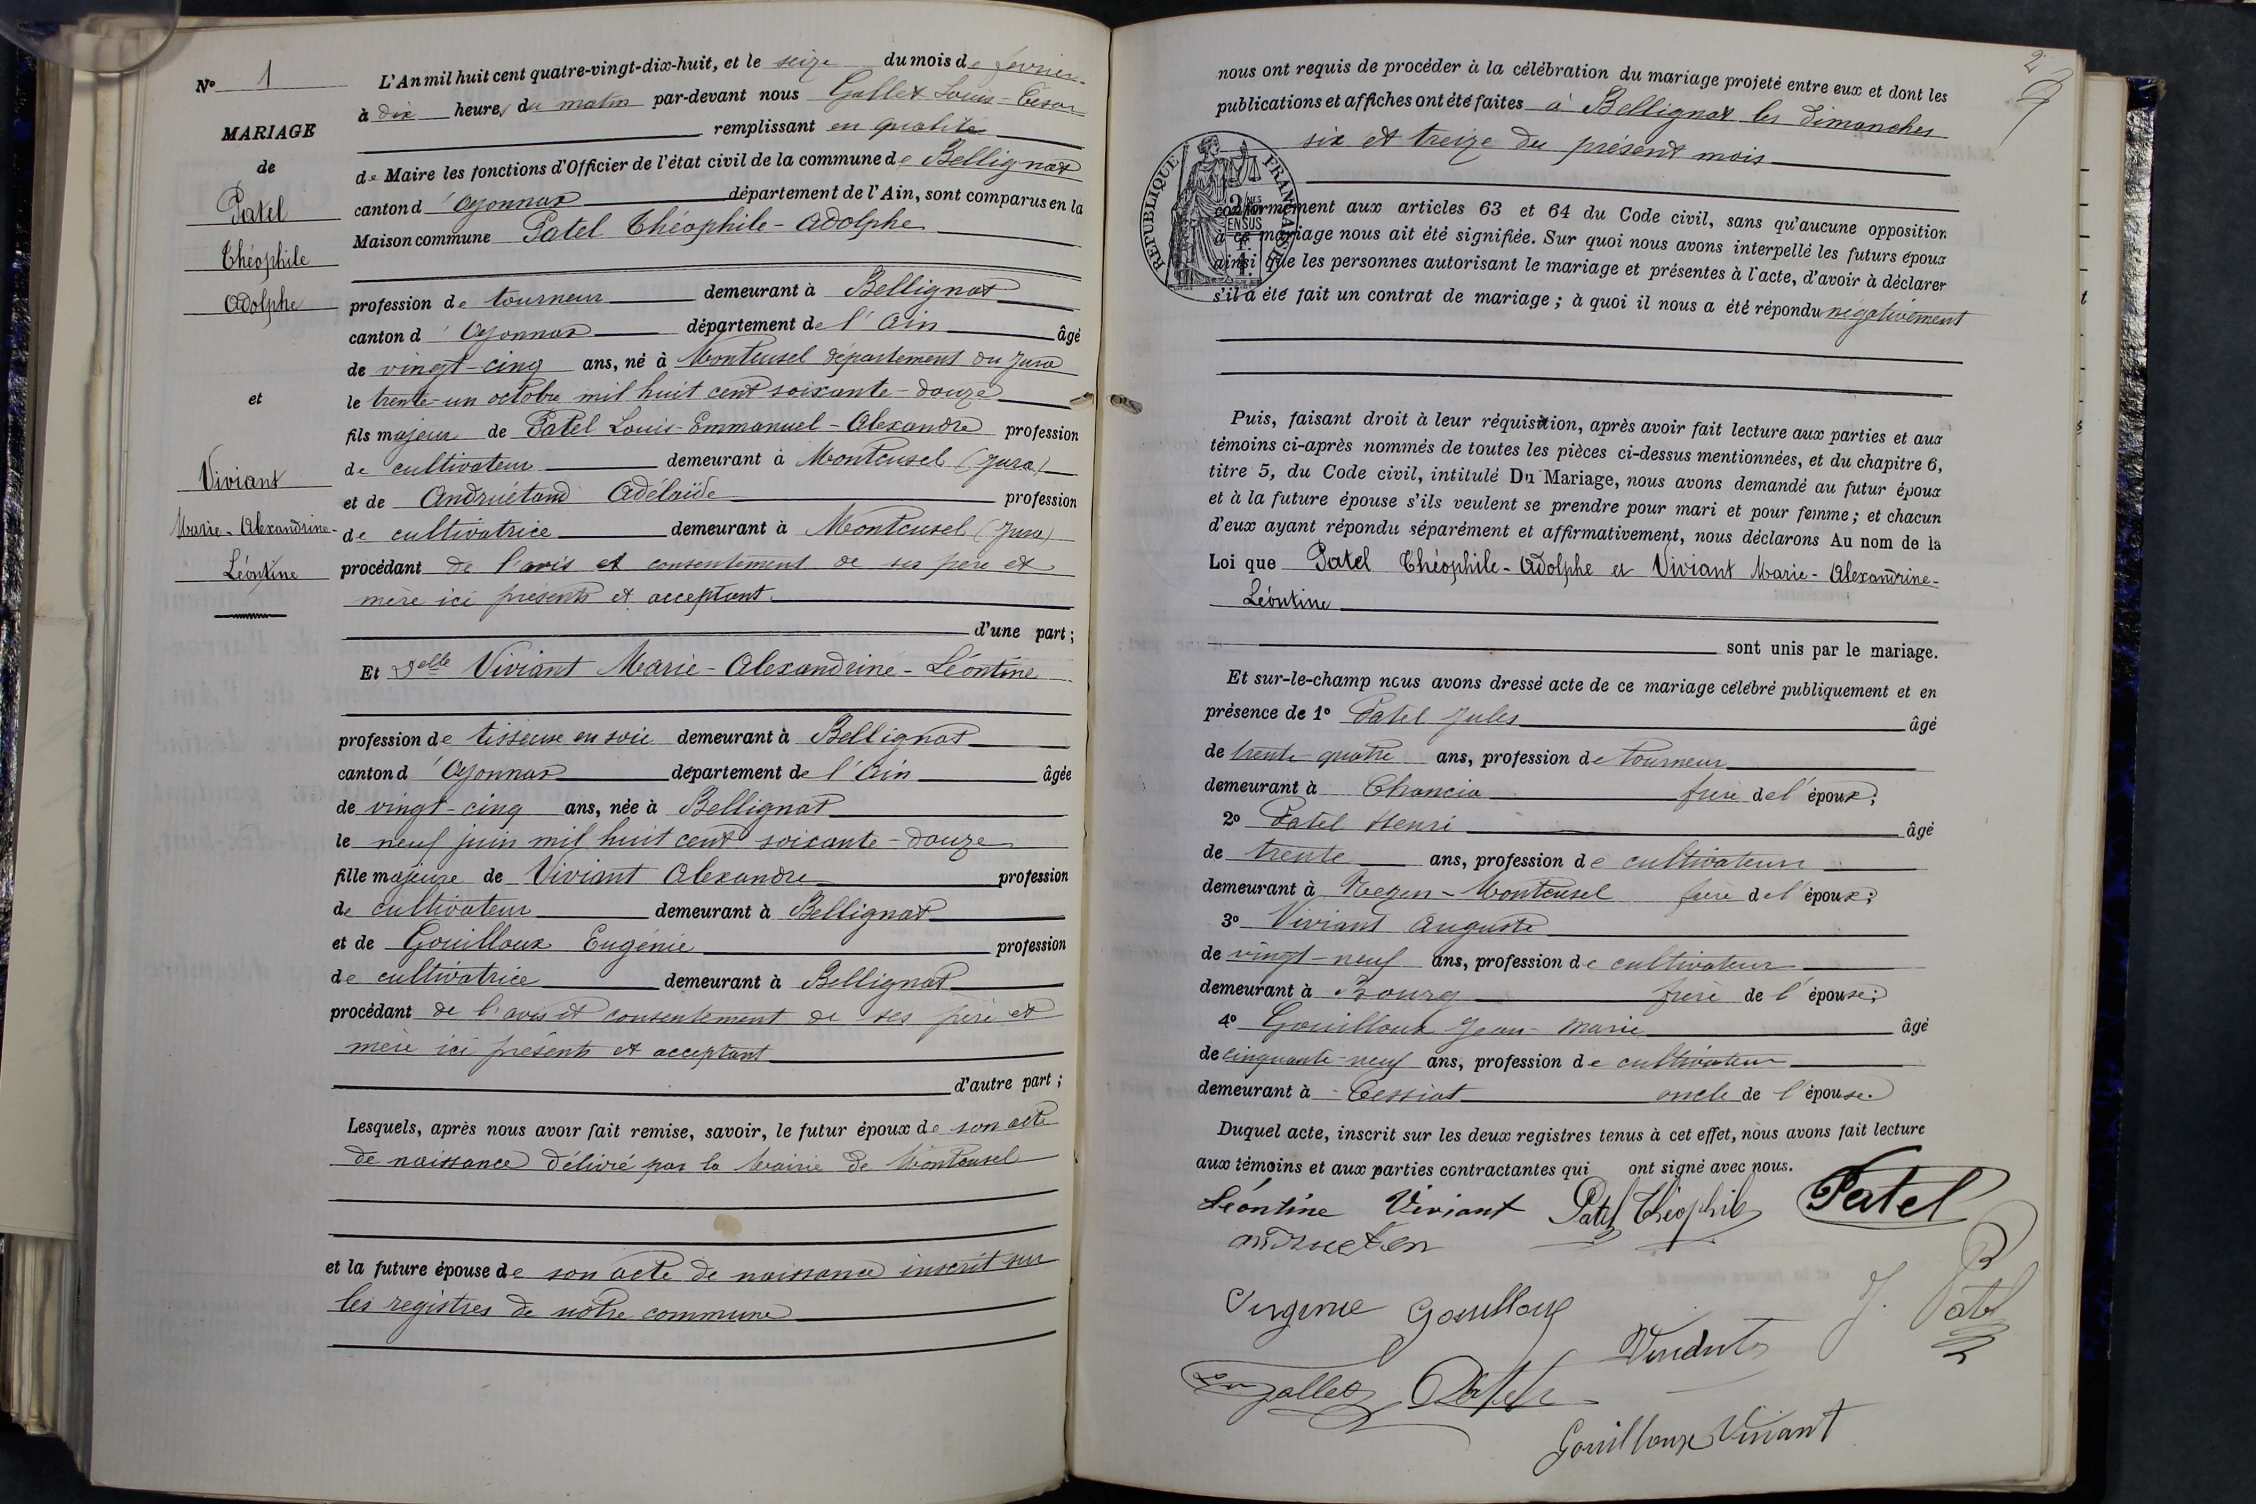 N° 1
MARIAGE
de
Patel
Théophile
Adolphe
et
Viviant
Marie-Alexandrine-
Léontine
L'An mil huit cent quatre-vingt-dix-huit, et le seize du mois de février
à dix heures du matin par-devant nous Gallet Louis-César
remplissant en qualité
de Maire les fonctions d'Officier de l'état civil de la commune de Bellignat
canton d'Oyonnax département de l'Ain, sont comparus en la
Maison commune Patel Théophile-Adolphe
profession de tourneur demeurant à Bellignat
canton d'Oyonnax département de l'Ain âgé
de vingt-cinq ans, né à Montcusel département du Jura
le trente-un octobre mil huit cent soixante-douze
fils majeur de Patel Louis-Emmanuel-Alexandre profession
de cultivateur demeurant à Montcusel (Jura)
et de Andruétand Adélaïde profession
de cultivatrice demeurant à Montcusel (Jura)
procédant de l'avis et consentement de ses père et
mère ici présents et acceptant
d'une part ;
Et Delle Viviant Marie-Alexandrine-Léontine
profession de tisseuse en soie demeurant à Bellignat
canton d'Oyonnax département de l'Ain âgée
de vingt-cinq ans, née à Bellignat
le neuf juin mil huit cent soixante-douze
fille majeure de Viviant Alexandre profession
de cultivateur demeurant à Bellignat
et de Gouilloux Eugénie profession
de cultivatrice demeurant à Bellignat
procédant de l'avis et consentement de ses père et
mère ici présents et acceptant
d'autre part ;
Lesquels, après nous avoir fait remise, savoir, le futur époux de son acte
de naissance délivré par la Mairie de Montcusel
et la future épouse de son acte de naissance inscrit sur
les registres de notre commune
2
nous ont requis de procéder à la célébration du mariage projeté entre eux et dont les
publications et affiches ont été faites à Bellignat les dimanches
six et treize du présent mois
RÉPUBLIQUE FRANÇAISE
conformément aux articles 63 et 64 du Code civil, sans qu'aucune opposition
à ce mariage nous ait été signifiée. Sur quoi nous avons interpellé les futurs époux
ainsi que les personnes autorisant le mariage et présentes à l'acte, d'avoir à déclarer
s'il a été fait un contrat de mariage ; à quoi il nous a été répondu négativement
Puis, faisant droit à leur réquisition, après avoir fait lecture aux parties et aux
témoins ci-après nommés de toutes les pièces ci-dessus mentionnées, et du chapitre 6,
titre 5, du Code civil, intitulé Du Mariage, nous avons demandé au futur époux
et à la future épouse s'ils veulent se prendre pour mari et pour femme ; et chacun
d'eux ayant répondu séparément et affirmativement, nous déclarons Au nom de la
Loi que Patel Théophile-Adolphe et Viviant Marie-Alexandrine-
Léontine
sont unis par le mariage.
Et sur-le-champ nous avons dressé acte de ce mariage célébré publiquement et en
présence de 1° Patel Jules âgé
de trente-quatre ans, profession de tourneur
demeurant à Chancia frère de l'époux ;
2° Patel Henri âgé
de trente ans, profession de cultivateur
demeurant à Montcusel frère de l'époux ;
3° Viviant Auguste
de vingt-neuf ans, profession de cultivateur
demeurant à Bourg frère de l'épouse ;
4° Gouilloux Jean-Marie âgé
de cinquante-neuf ans, profession de cultivateur
demeurant à Cessiat oncle de l'épouse.
Duquel acte, inscrit sur les deux registres tenus à cet effet, nous avons fait lecture
aux témoins et aux parties contractantes qui ont signé avec nous.
Léontine Viviant Patel Théophile Patel
J. Patel
Gouilloux
Gallet Patel
Gouilloux Viviant